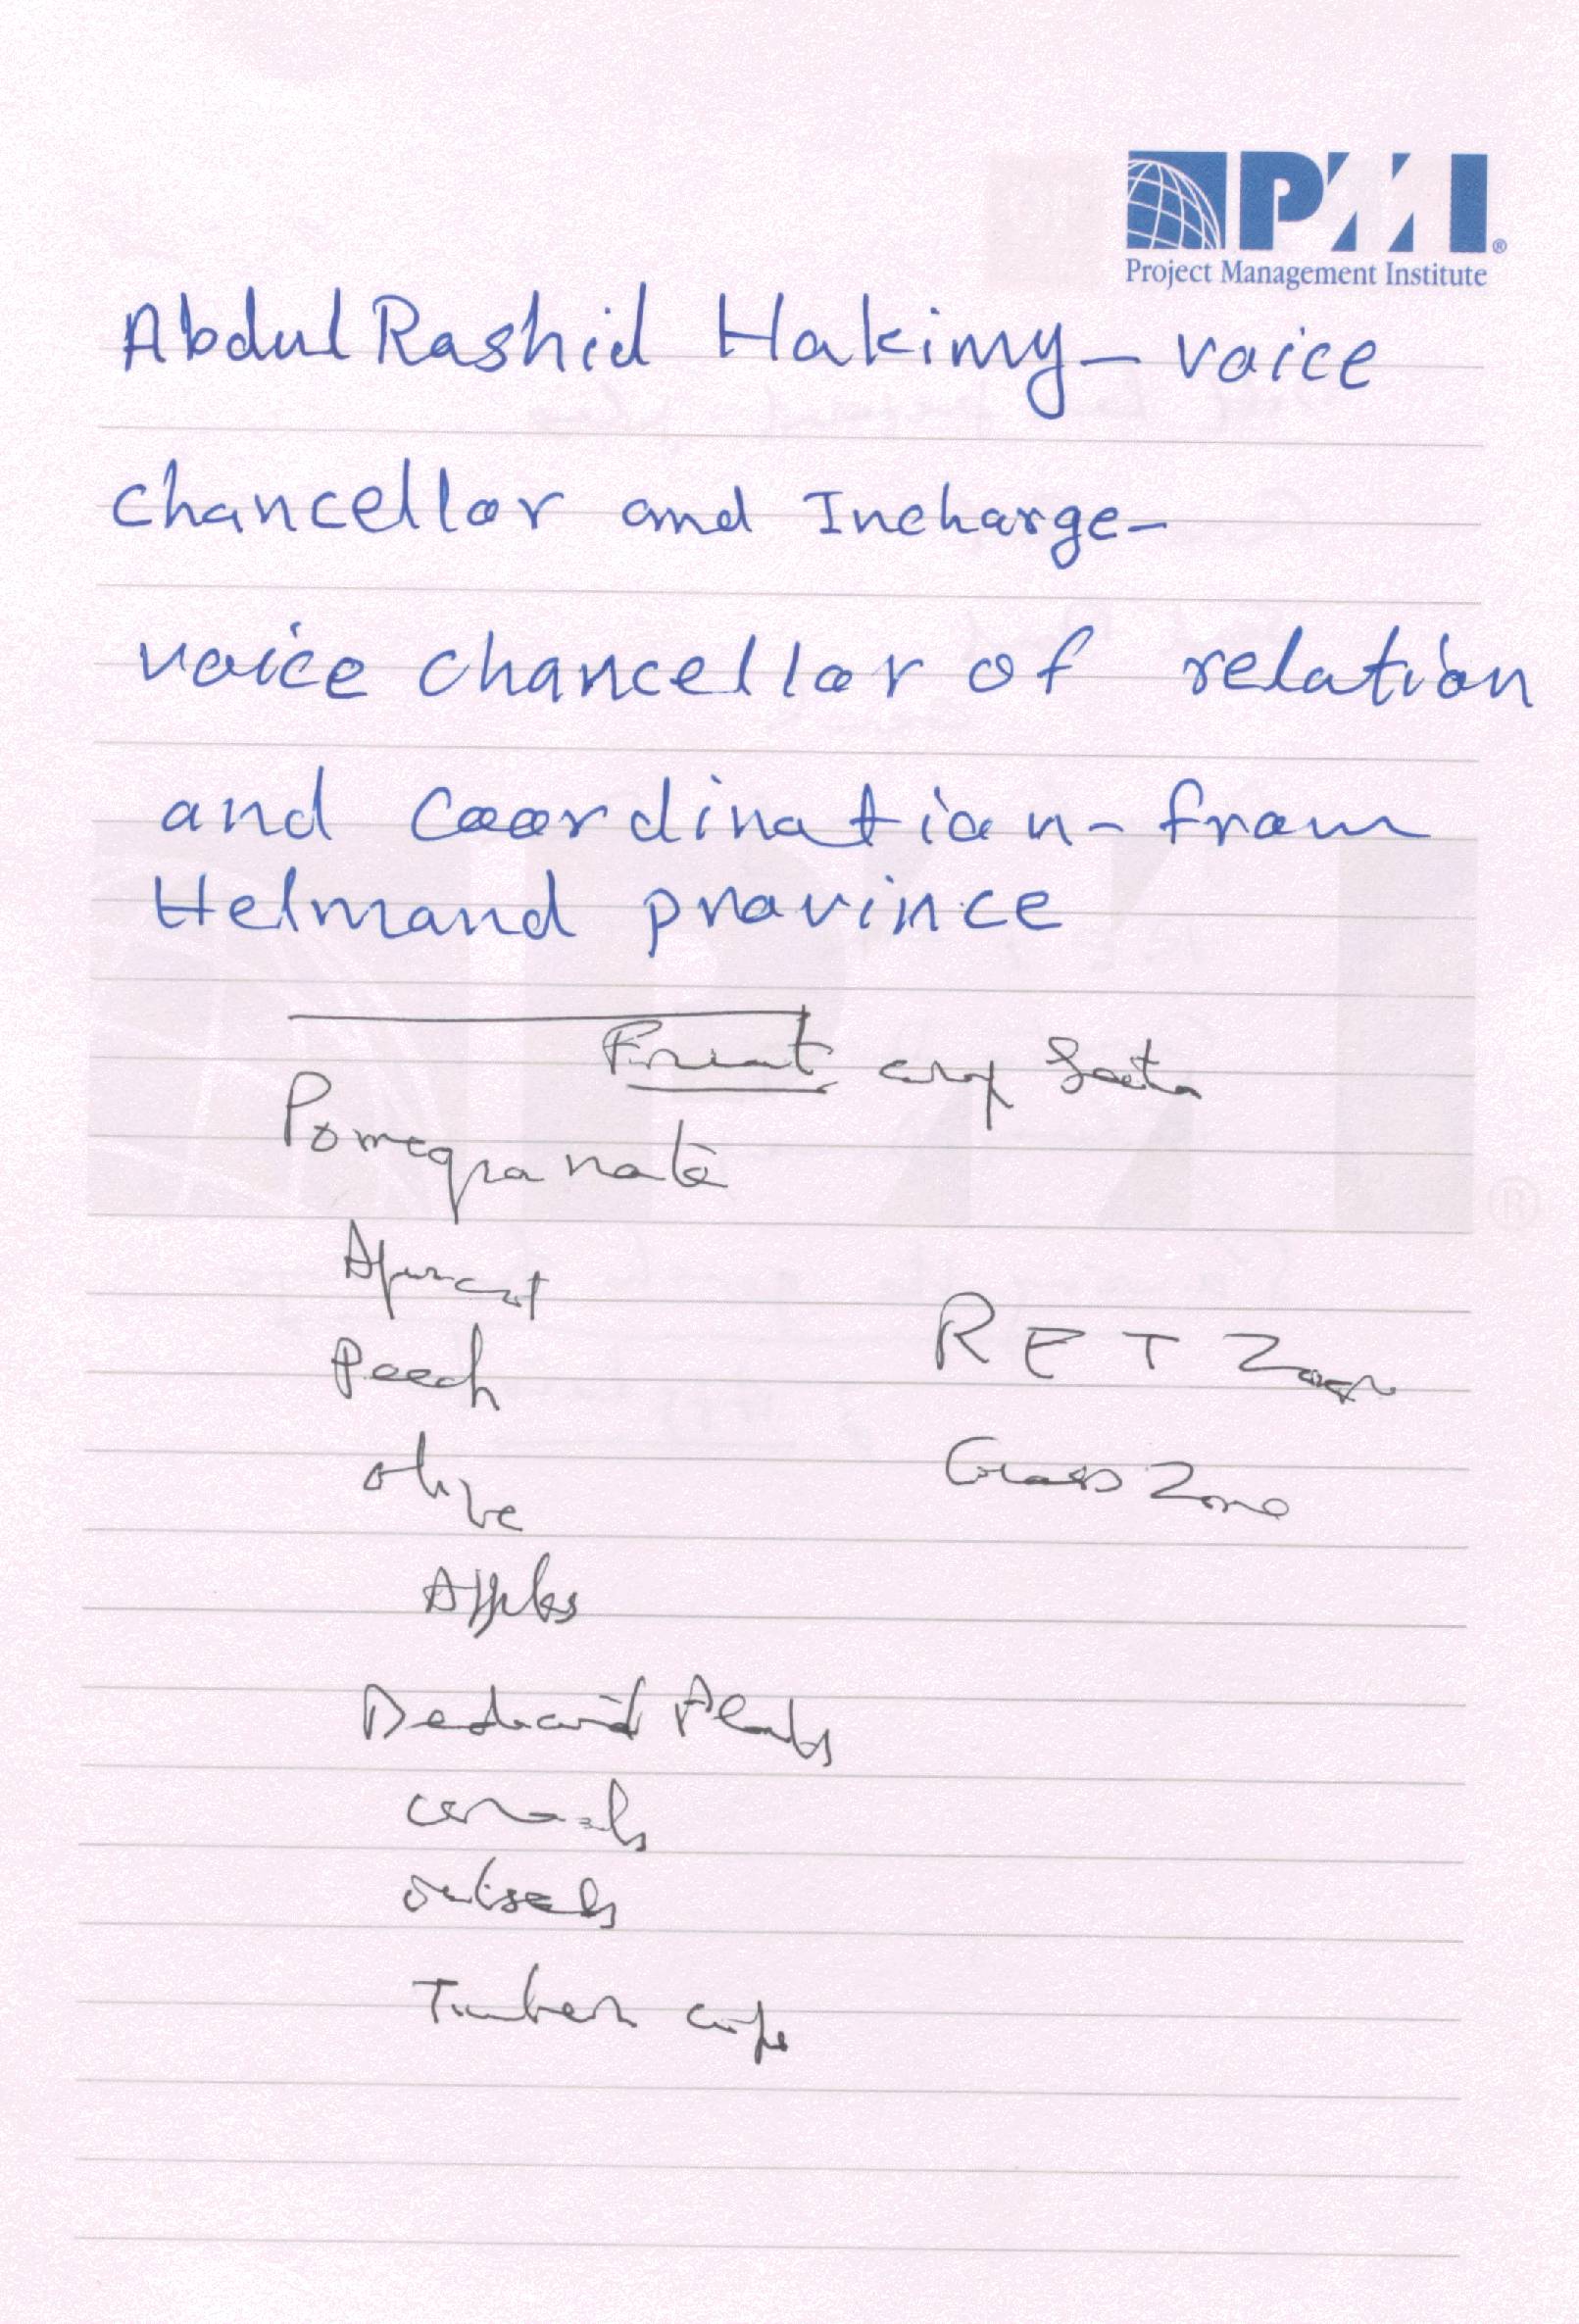 PMI®
Project Management Institute
Abdul Rashid Hakimy - voice
chancellor and Incharge-
voice chancellor of relation
and coordination - from
Helmand province
Fruit crop
Pomegranate
Apricot
Peech
olive
Apples
Plants
cereals
Timber crops
RET Zone
Grass Zone